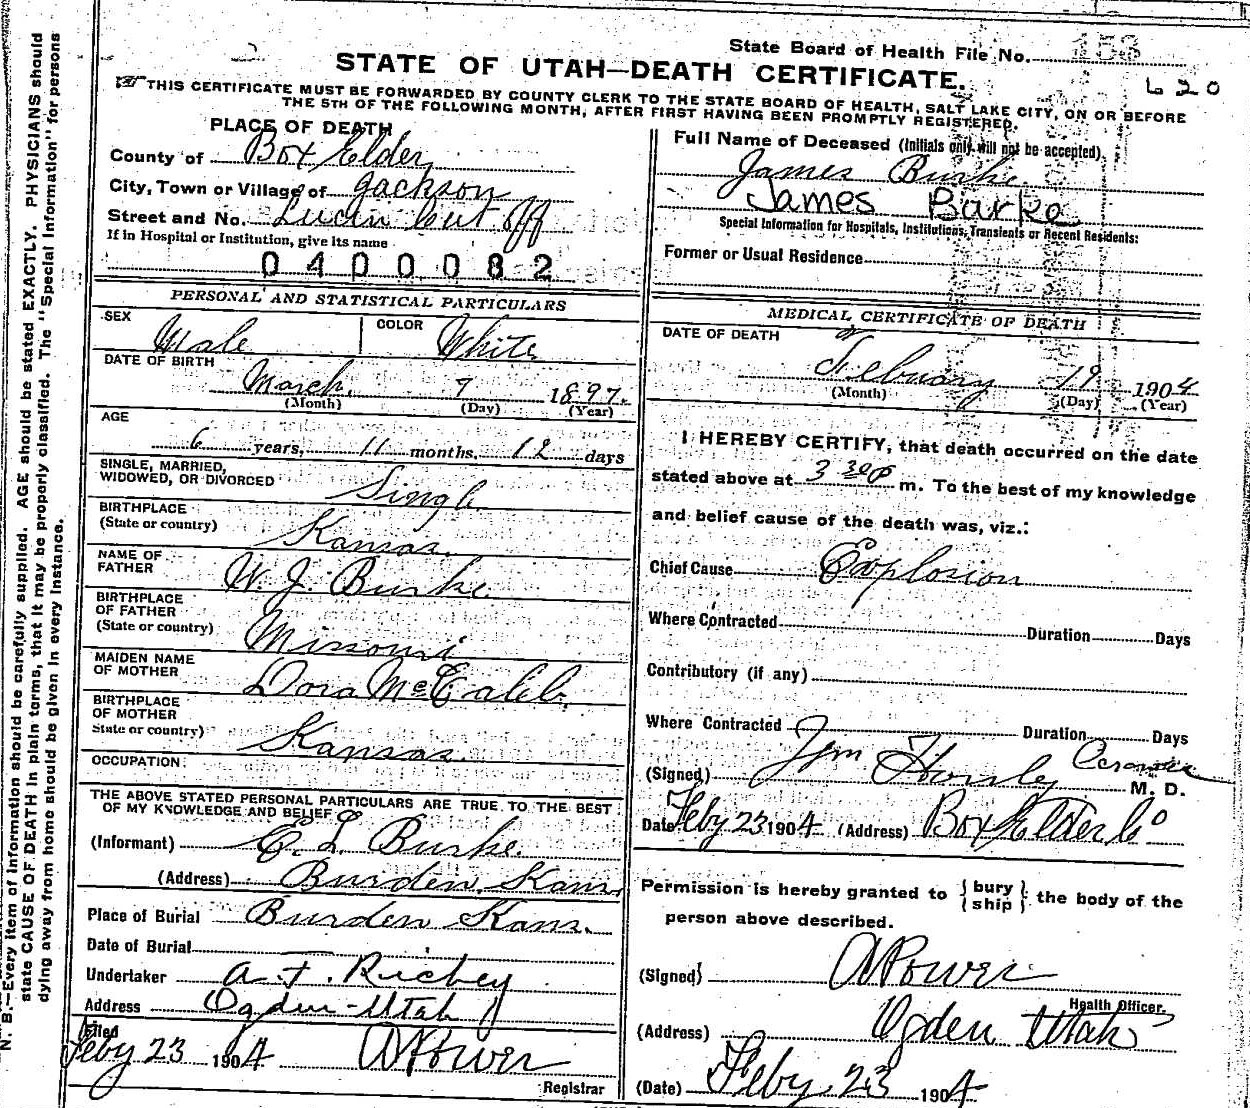 State Board of Health File No. 153
620
STATE OF UTAH—DEATH CERTIFICATE.
THIS CERTIFICATE MUST BE FORWARDED BY COUNTY CLERK TO THE STATE BOARD OF HEALTH, SALT LAKE CITY, ON OR BEFORE
THE 5TH OF THE FOLLOWING MONTH, AFTER FIRST HAVING BEEN PROMPTLY REGISTERED.
PLACE OF DEATH
County of Box Elder
City, Town or Village of Jackson
Street and No. Lucin Cut Off
If in Hospital or Institution, give its name
0400082
Full Name of Deceased (Initials only will not be accepted)
James Burke
James Burke
Special Information for Hospitals, Institutions, Transients or Recent Residents:
Former or Usual Residence
PERSONAL AND STATISTICAL PARTICULARS
SEX Male COLOR White
DATE OF BIRTH
March 7 1897.
(Month) (Day) (Year)
AGE
6 years, 11 months, 12 days
SINGLE, MARRIED,
WIDOWED, OR DIVORCED Single
BIRTHPLACE
(State or country) Kansas.
NAME OF
FATHER W. J. Burke
BIRTHPLACE
OF FATHER
(State or country) Missouri
MAIDEN NAME
OF MOTHER Dora McCaleb.
BIRTHPLACE
OF MOTHER
State or country) Kansas.
OCCUPATION
THE ABOVE STATED PERSONAL PARTICULARS ARE TRUE TO THE BEST
OF MY KNOWLEDGE AND BELIEF
(Informant) C. L. Burke.
(Address) Burden, Kans.
Place of Burial Burden Kans.
Date of Burial
Undertaker A. F. Richey
Address Ogden-Utah
Filed
Feby 23 1904 A Power
Registrar
MEDICAL CERTIFICATE OF DEATH
DATE OF DEATH
Febuary 19 1904
(Month) (Day) (Year)
I HEREBY CERTIFY, that death occurred on the date
stated above at 3 30 p m. To the best of my knowledge
and belief cause of the death was, viz.:
Chief Cause Explosion
Where Contracted Duration Days
Contributory (if any)
Where Contracted Duration Days
(Signed) Wm Horsley Coroner M. D.
Date Feby 23 1904 (Address) Box Elder Co
Permission is hereby granted to { bury / ship } the body of the
person above described.
(Signed) A Power
Health Officer.
(Address) Ogden Utah
(Date) Feby 23 1904
N. B.—Every item of information should be carefully supplied. AGE should be stated EXACTLY. PHYSICIANS should
state CAUSE OF DEATH in plain terms, that it may be properly classified. The "Special Information" for persons
dying away from home should be given in every instance.